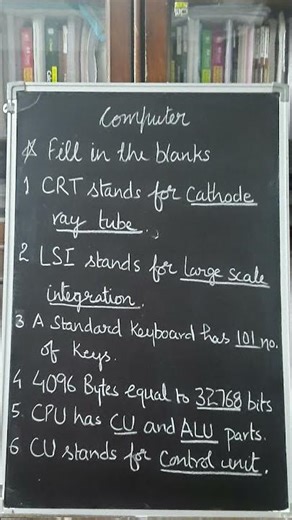 Computer
Fill in the blanks
1 CRT stands for Cathode
ray tube.
2 LSI stands for large scale
integration.
3 A Standard Keyboard has 101 no.
of Keys.
4 4096 Bytes equal to 32768 bits
5. CPU has CU and ALU parts.
6 CU stands for Control unit.